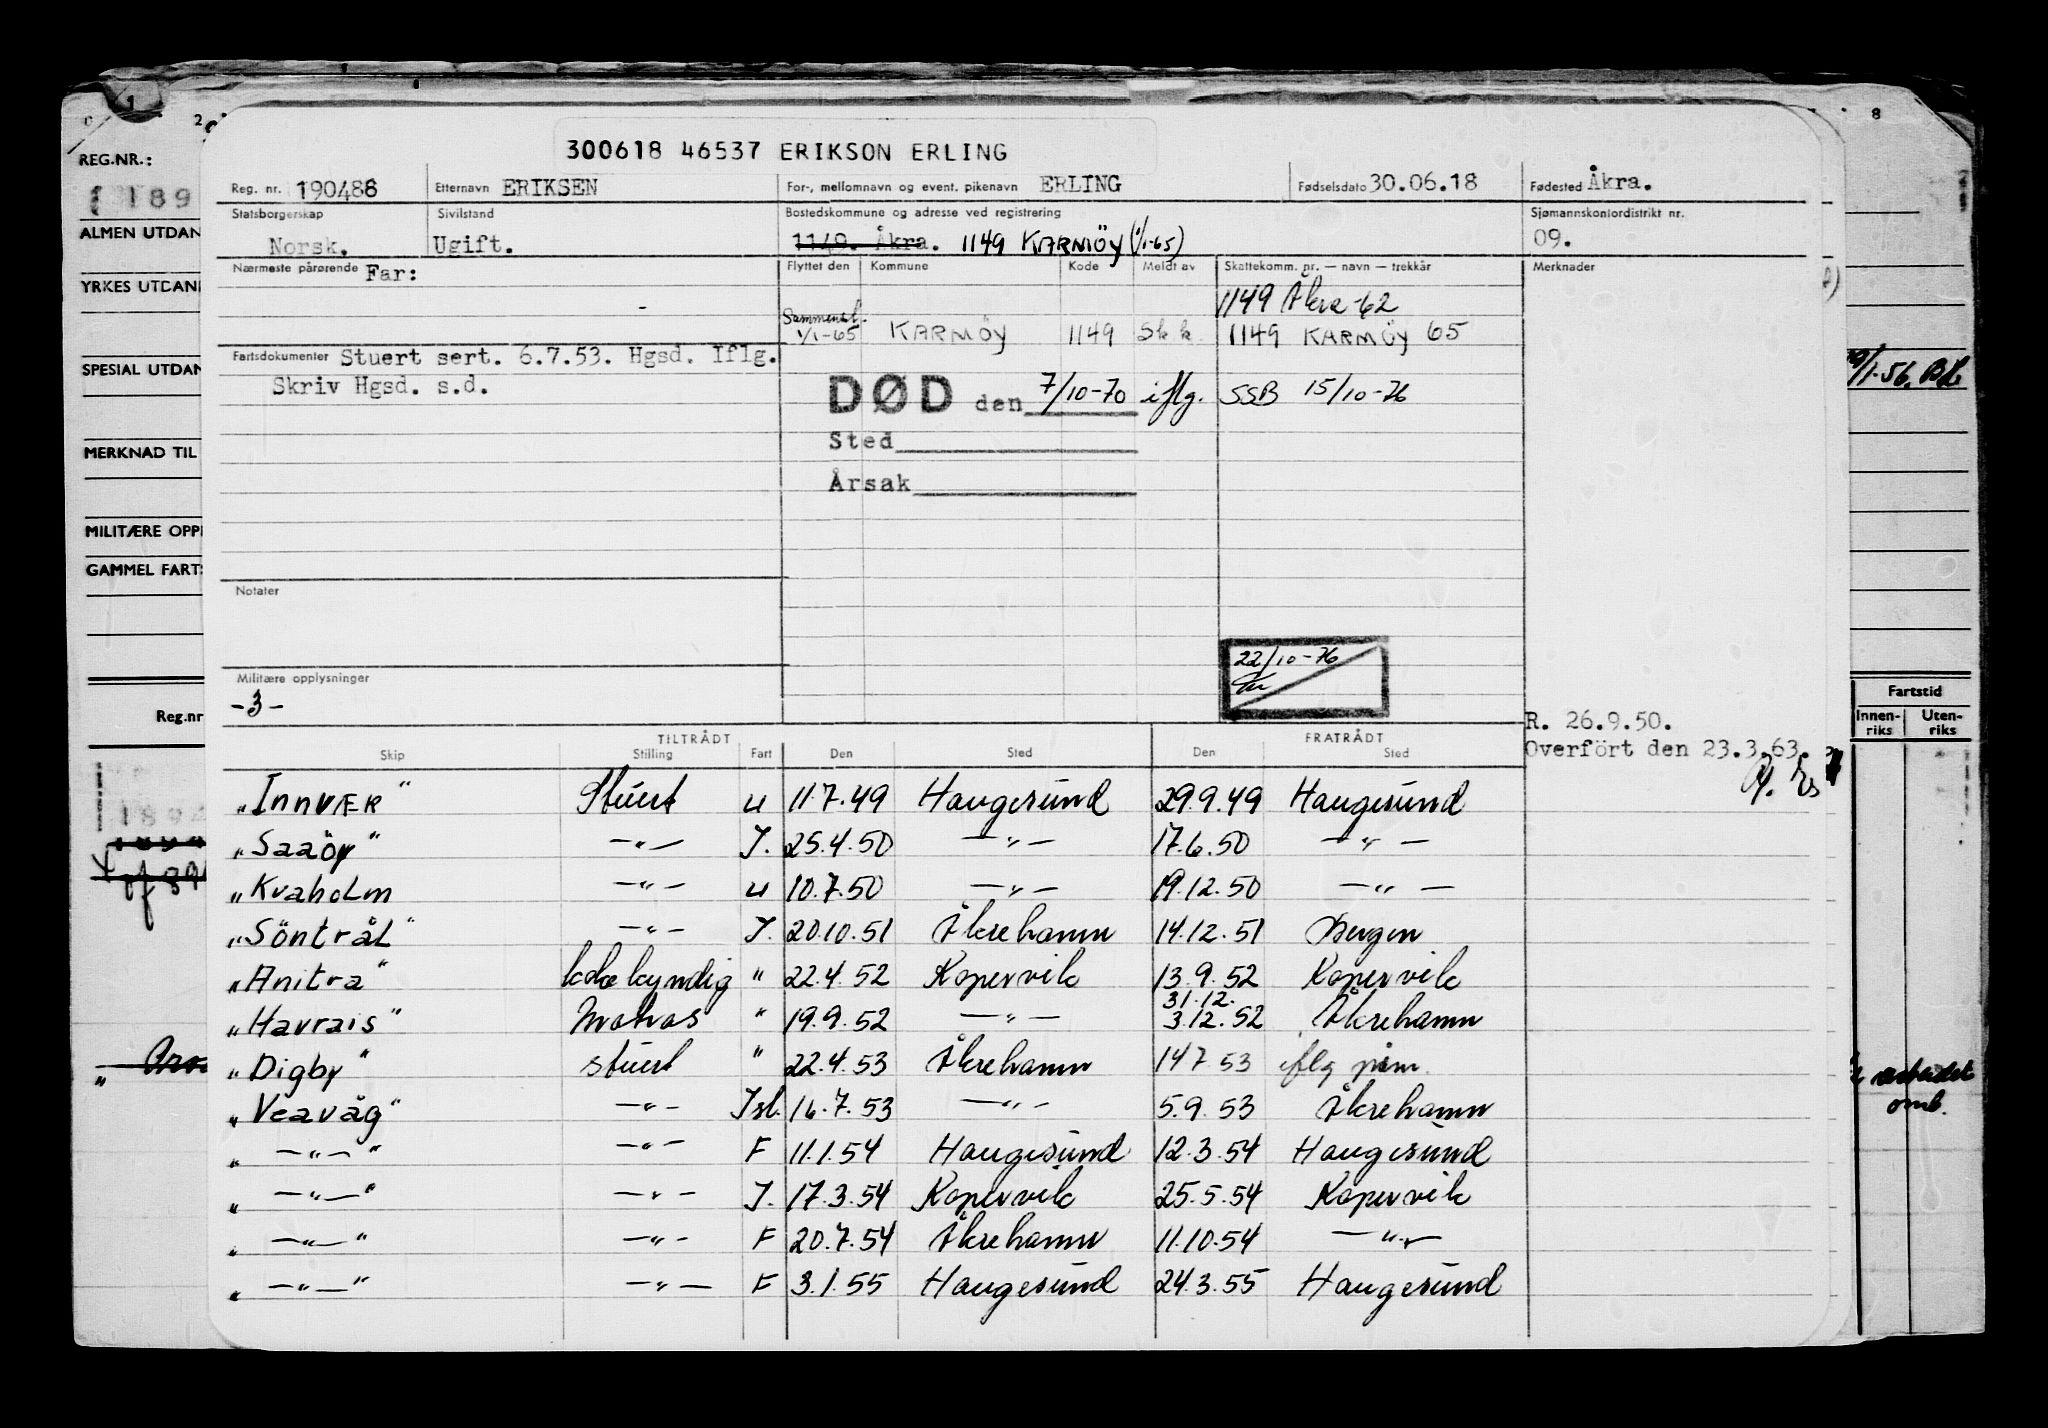 300618 46537 ERIKSON ERLING
Reg. nr. 190488 Etternavn ERIKSEN For-, mellomnavn og event. pikenavn ERLING Fødselsdato 30.06.18 Fødested Åkra.
Statsborgerskap Sivilstand Bostedskommune og adresse ved registrering Sjømannskontordistrikt nr.
Norsk. Ugift. 1149. Åkra. 1149 KARMÖY (1/1-65) 09.
Nærmeste pårørende Far: Flyttet den Kommune Kode Meldt av Skattekomm. nr. — navn — trekkår Merknader
1149 Åkra -62
Sammensl. 1/1-65 KARMÖY 1149 Sk k 1149 KARMÖY 65
Fartsdokumenter Stuert sert. 6.7.53. Hgsd. Iflg.
Skriv Hgsd. s.d.
DØD den 7/10-70 iflg. SSB 15/10-76
Sted
Årsak
Notater
22/10-76
Militære opplysninger
-3-
R. 26.9.50.
Overfört den 23.3.63.
TILTRÅDT FRATRÅDT
Skip Stilling Fart Den Sted Den Sted
"INNVÆR" Stuert u 11.7.49 Haugesund 29.9.49 Haugesund
"Saaöy" —"— I. 25.4.50 —"— 17.6.50 —"—
"Kvaholm —"— u 10.7.50 —"— 19.12.50 —"—
"Söntrål" —"— I. 20.10.51 Åkrehamn 14.12.51 Bergen
"Anitra" kokekyndig " 22.4.52 Kopervik 13.9.52 Kopervik
31.12.
"Havrais" Matros " 19.9.52 —"— 3.12.52 Åkrehamn
"Digby" stuert " 22.4.53 Åkrehamn 14 7 53 iflg påm.
"Veavåg" —"— Isl. 16.7.53 —"— 5.9.53 Åkrehamn
" —"— " —"— F 11.1.54 Haugesund 12.3.54 Haugesund
" —"— " —"— I. 17.3.54 Kopervik 25.5.54 Kopervik
" —"— " —"— F 20.7.54 Åkrehamn 11.10.54 —"—
" —"— " —"— F 3.1.55 Haugesund 24.3.55 Haugesund
1
2
REG.NR.:
189
ALMEN UTDAN
YRKES UTDAN
SPESIAL UTDAN
MERKNAD TIL
MILITÆRE OPP
GAMMEL FARTS
Reg.nr
8
Fartstid
Innen-riks Uten-riks
arbeidet
omb.